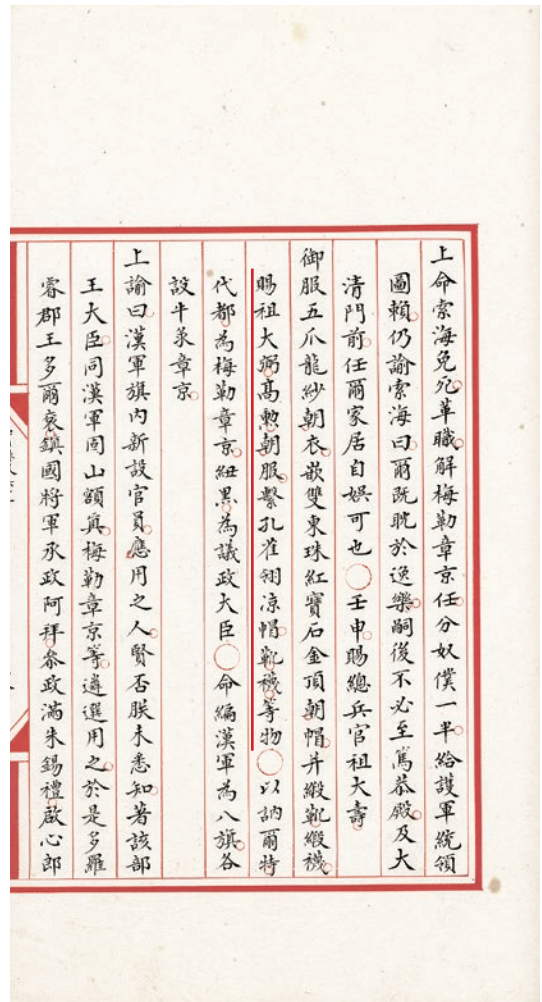 上命索海免死革職解梅勒章京任分奴僕一半給護軍統領
圖賴仍諭索海曰爾既耽於逸樂嗣後不必至篤恭殿及大
清門前任爾家居自娛可也○壬申賜總兵官祖大壽
御服五爪龍紗朝衣嵌雙東珠紅寶石金頂朝帽并緞靴緞襪
賜祖大弼高勲朝服繫孔雀翎涼帽靴襪等物○以訥爾特
代都為梅勒章京紐黑為議政大臣○命編漢軍為八旗各
設牛彔章京
上諭曰漢軍旗內新設官員應用之人賢否朕未悉知著該部
王大臣同漢軍固山額真梅勒章京等遴選用之於是多羅
睿郡王多爾袞鎮國將軍承政阿拜叅政滿朱錫禮啟心郎